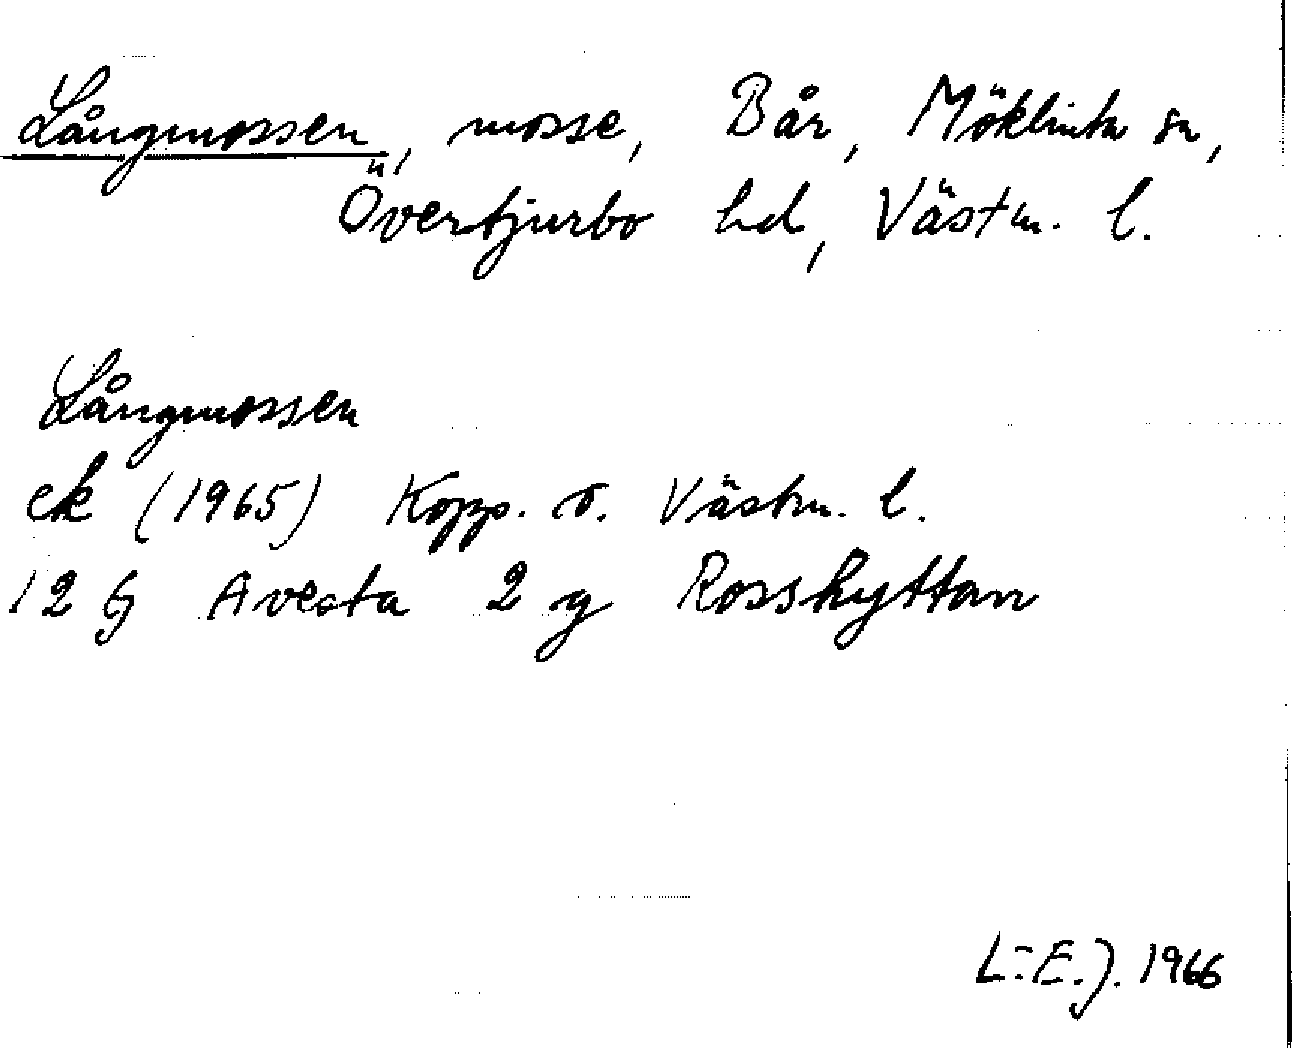 Långmossen, mosse, Bår, Möklinta sn,
Övertjurbo hd, Västm. l.
Långmossen
ek (1965) Kopp. o. Västm. l.
12 G Avesta 2 g Rosshyttan
L.-E.J. 1966